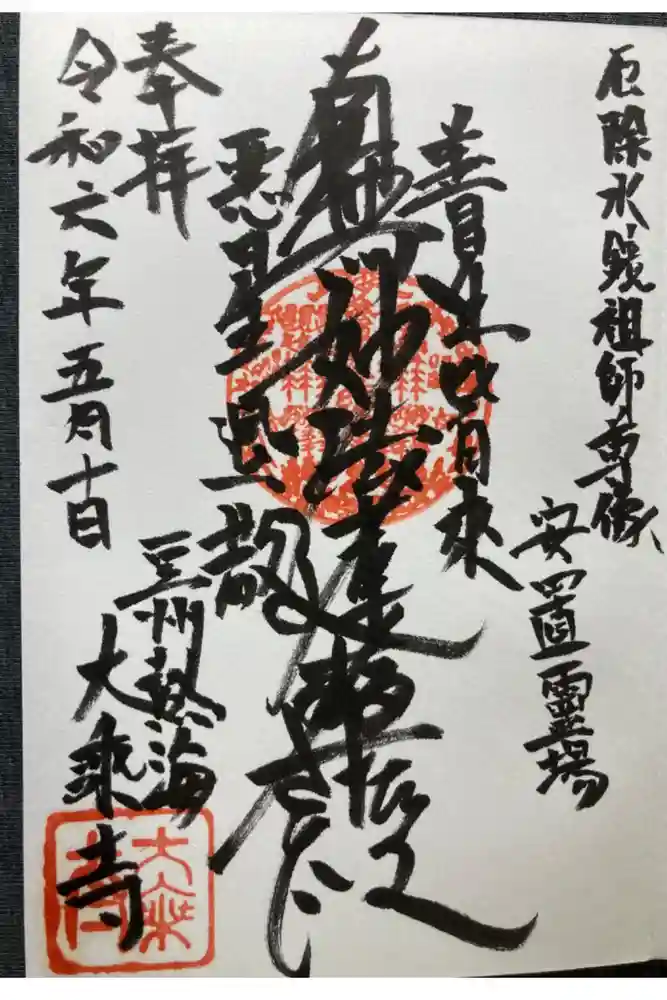 厄除水鏡祖師尊像
安置霊場
善星皆来
南無妙法蓮華経
悪星退散
奉拝
令和六年五月十日
豆州熱海
大乘寺
大乘寺